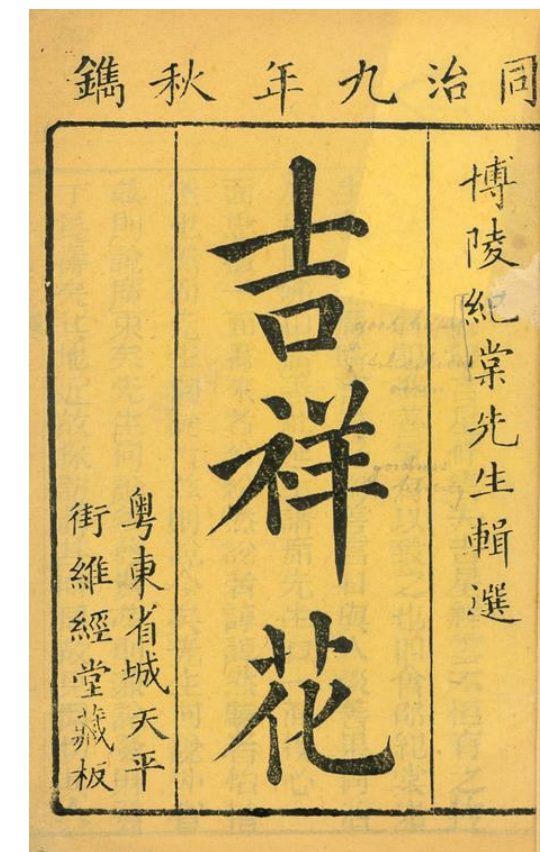 同治九年秋鐫
博陵紀棠先生輯選
吉祥花
粤東省城天平
街維經堂藏板